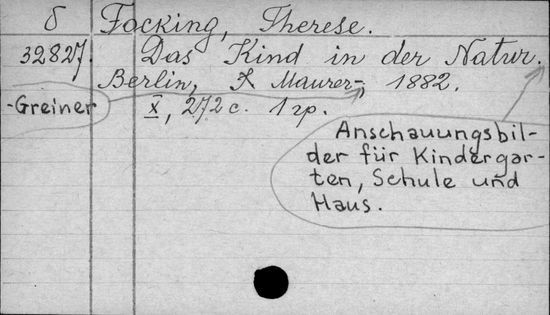 δ Focking, Therese.
32827. Das Kind in der Natur.
Berlin, Maurer-, 1882.
-Greiner X, 272 c. 1 гр.
Anschauungsbil-
der für Kindergar-
ten, Schule und
Haus.